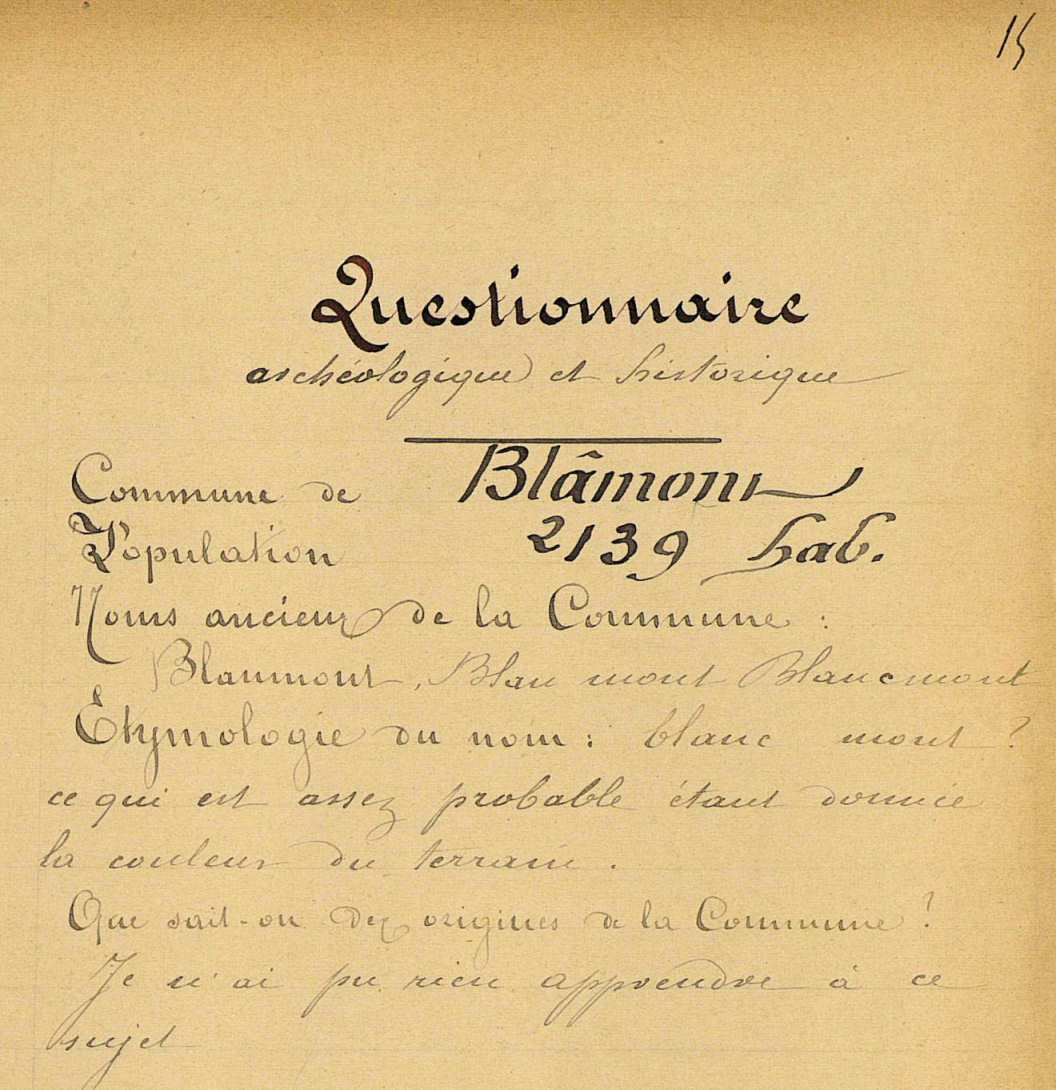 15
Questionnaire
archéologique et historique
Commune de Blâmont
Population 2139 hab.
Noms anciens de la Commune :
Blaumont, Blau mont Blancmont
Etymologie du nom : blanc mont ?
ce qui est assez probable étant donnée
la couleur du terrain .
Que sait-on des origines de la Commune ?
Je n'ai pu rien apprendre à ce
sujet